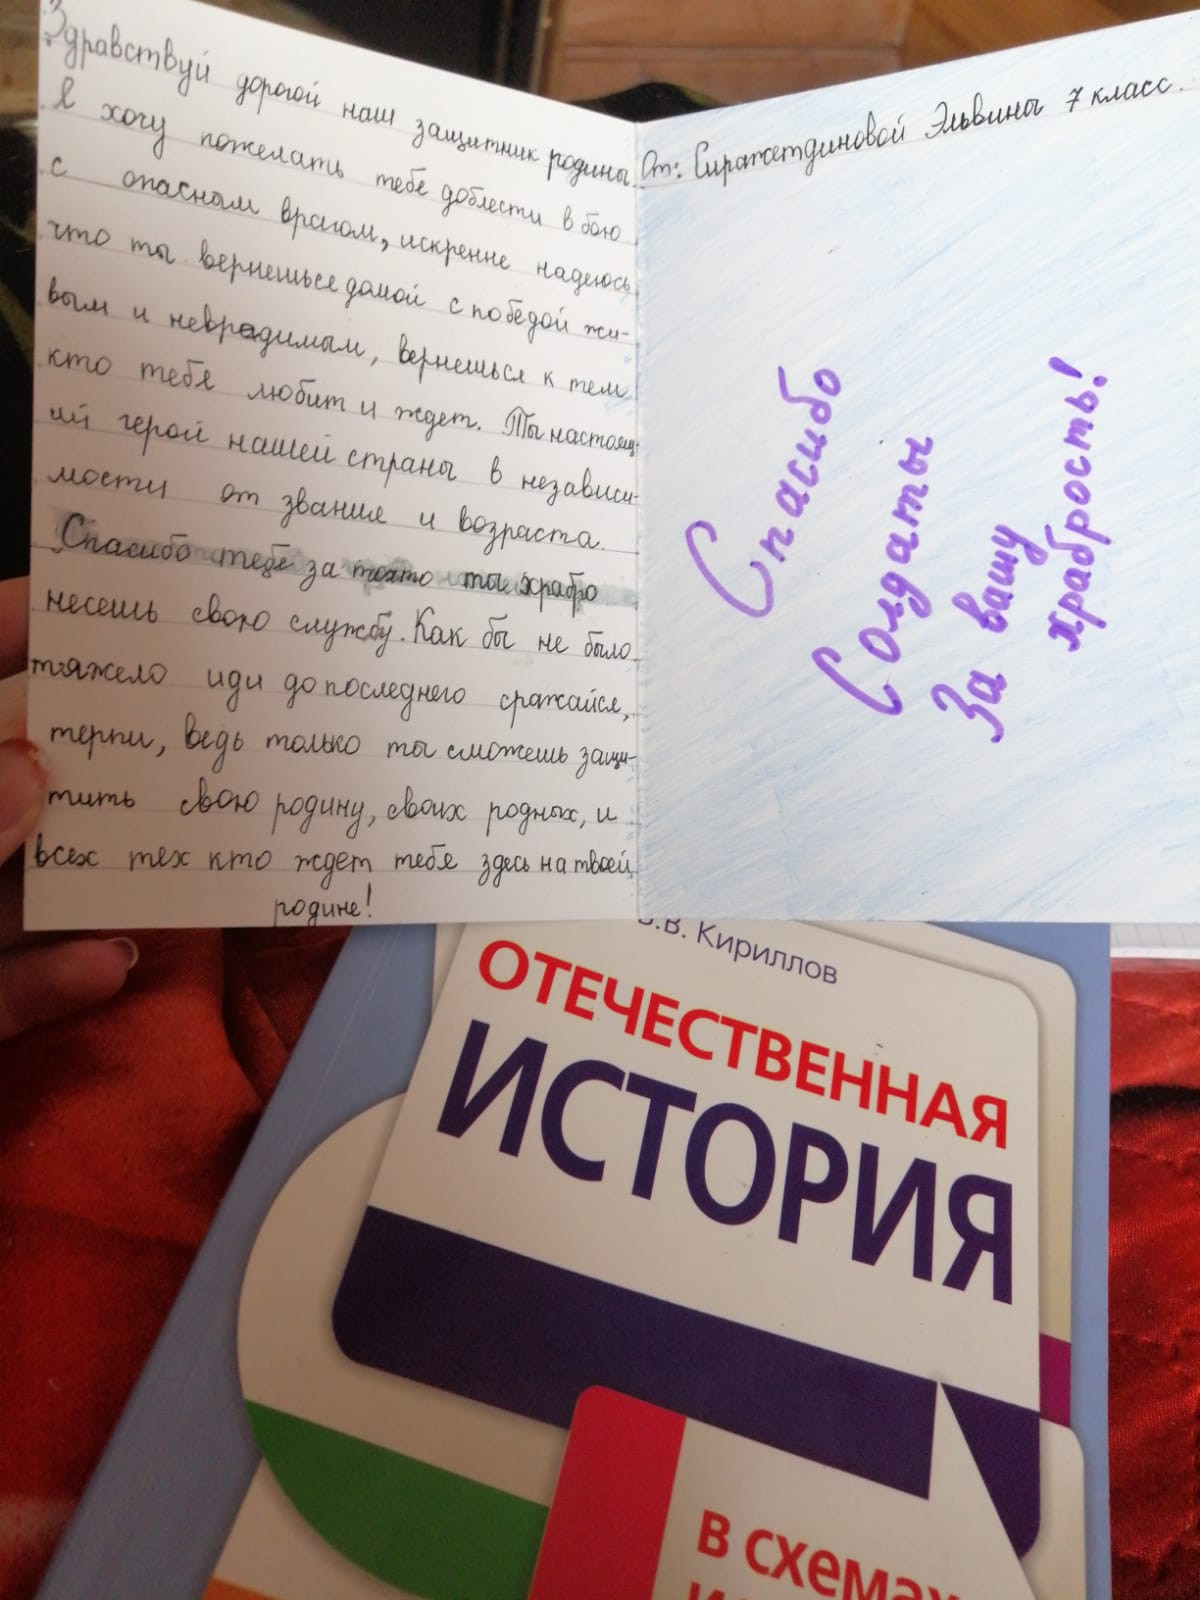 Здравствуй дорогой наш защитник родины.
Я хочу пожелать тебе доблести в бою
с опасным врагом, искренне надеюсь
что ты вернешьсе домой с победой жи-
вым и невредимым, вернешься к тем
кто тебя любит и ждет. Ты настоящ-
ий герой нашей страны в независи-
мости от звание и возраста.
Спасибо тебе за то что ты храбро
несешь свою службу. Как бы не было
тяжело иди до последнего сражайся,
терпи, ведь только ты сможешь защи-
тить свою родину, своих родных, и
всех тех кто ждет тебя здесь на твоей
родине!
От: Сиражетдиновой Эльвины 7 класс.
Спасибо
Солдаты
За вашу
храбрость!
В.В. Кириллов
ОТЕЧЕСТВЕННАЯ
ИСТОРИЯ
в схемах